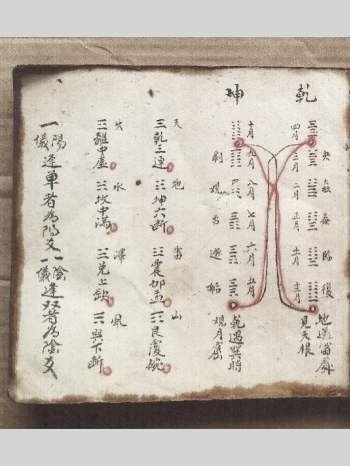 乾
坤
夬 壯 泰 臨 復 地逢雷處
四月 三月 二月 正月 見天根
十月 九月 八月 七月 六月 五月 乾遇巽時
剝 觀 否 遯 姤 現月窟
天 地 雷 山
☰乾三連 ☷坤六斷 ☳震仰盂 ☶艮覆碗
火 水 澤 風
☲離中虛 ☵坎中滿 ☱兌上缺 ☴巽下斷
陽儀 逢單者為陽爻 陰儀 逢双者為陰爻